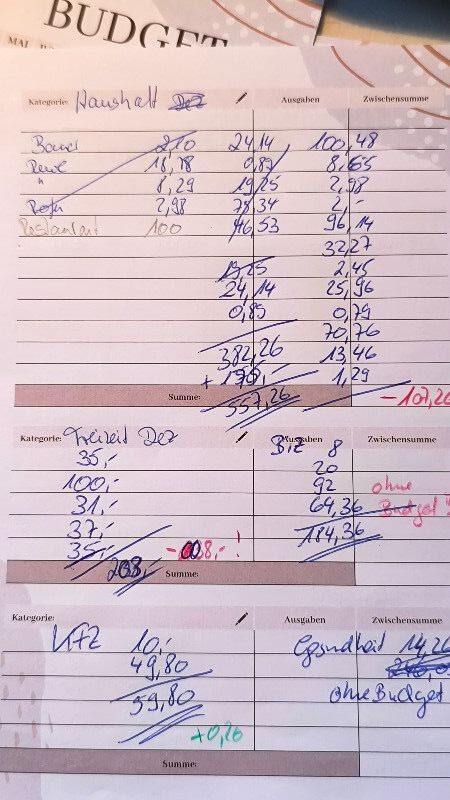 BUDGET
Kategorie: Haushalt Dez Ausgaben Zwischensumme
2,10 24,14 100,48
Rewe 18,78 0,89 8,65
" 8,29 19,25 2,98
2,98 78,34 2,-
Restaurant 100 46,53 96,14
32,27
19,25 2,45
24,14 25,96
0,89 0,79
70,76
382,26 13,46
1,29
Summe: 557,26
Kategorie: Freizeit Dez Ausgaben Zwischensumme
35,- 8
100,- 20
31,- 92 ohne
37,- 64,36 Budget
35,- 184,36
208,-
Summe:
Kategorie: Ausgaben Zwischensumme
Kfz 10,- Gesundheit 14,26
49,80
59,80 ohne Budget
+0,20
Summe: